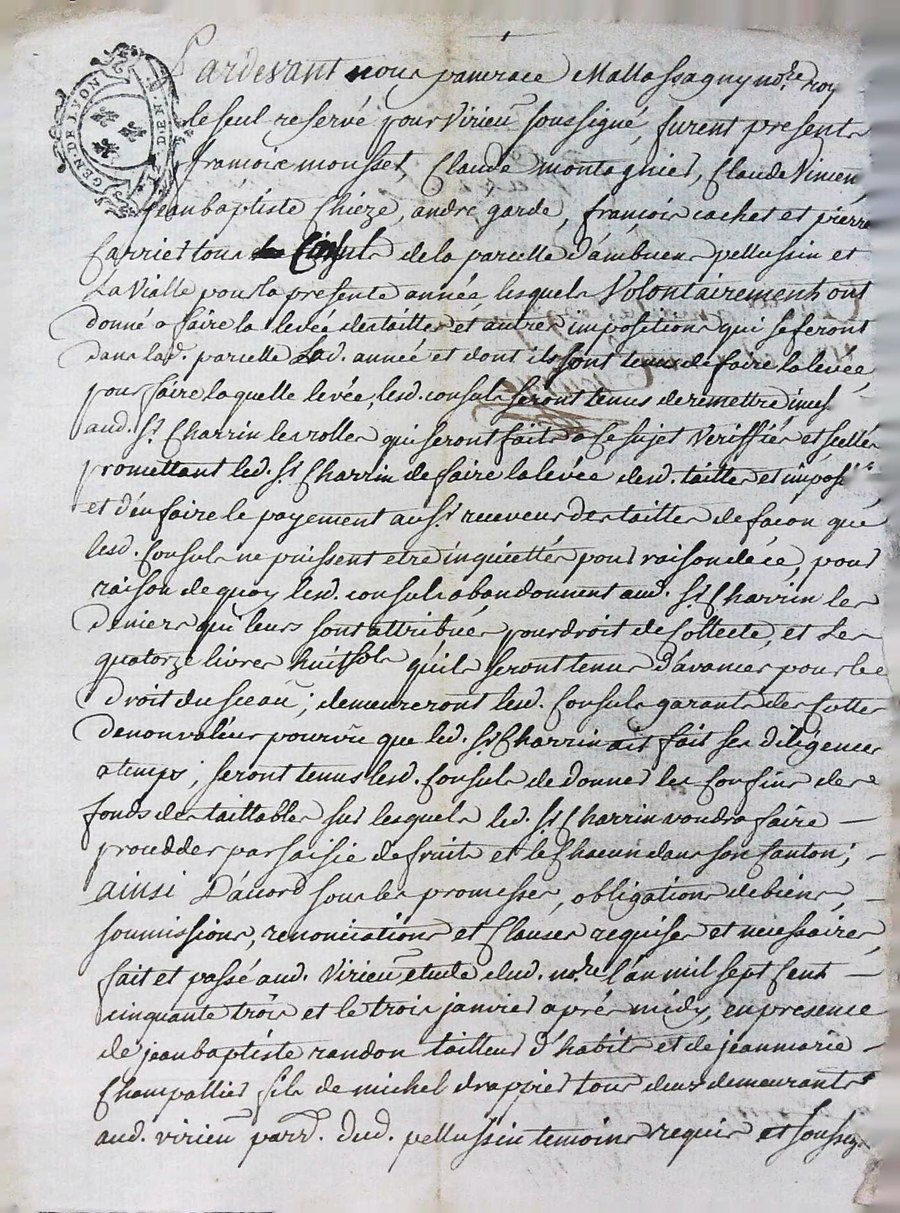 GEND·DE LYON
Pardevant nous pancrace Mallassagny no.re roy
le seul reservé pour Virieu soussigné, furent presents
françois mousset, Claude montagnier, Claude Vincen
Jean baptiste Chieze, andré garde, françois cachet et pierre
Carriet tous Consuls de la parcelle d'ambuen pellussin et
La Vialle pour la presente année lesquels Volontairement ont
donné a faire la levée des tailles et autres impositions qui se feront
dans lad. parcelle Lad. année et dont ils sont tenus de faire la levée,
pour faire laquelle levée, lesd. consuls seront tenus de remettre
aud. Sr. Charrin les rolles qui seront faits a ce sujet veriffiés et scellés
promettant led. Sr. Charrin de faire la levée desd. tailles et impos.
et d'en faire le payement au Sr. receveur des tailles de facon que
lesd. Consuls ne puissent etre inquiettés pour raison de ce, pour
raison de quoy lesd. consuls abandonnent aud. Sr. Charrin les
deniers qui leurs sont attribués pour droit de Collecte, et Les
quatorze livres huit sols qu'ils seront tenus d'avancer pour le
Droit du sceau; demeureront lesd. Consuls garants des Cottes
de non valeur pourvu que led. Sr. Charrin ait fait ses diligences
a temps; seront tenus lesd. Consuls de donner les Confins des
fonds des taillables sur lesquels led. Sr. Charrin voudra faire
procedder par saisie de fruits et le Chacun dans son Canton;
ainsi D'accord sous les promesses, obligations de biens,
soumissions, renonciations et Clauses requises et necessaires,
fait et passé aud. Virieu etude dud. no.re l'an mil sept Cent
cinquante trois et le trois janvier aprés midy, en presence
de jean baptiste randon tailleur d'habits et de jean marie
Champallier fils de michel drappier tous deux demeurants
aud. virieu parr. dud. pellussin temoins requis et soussig